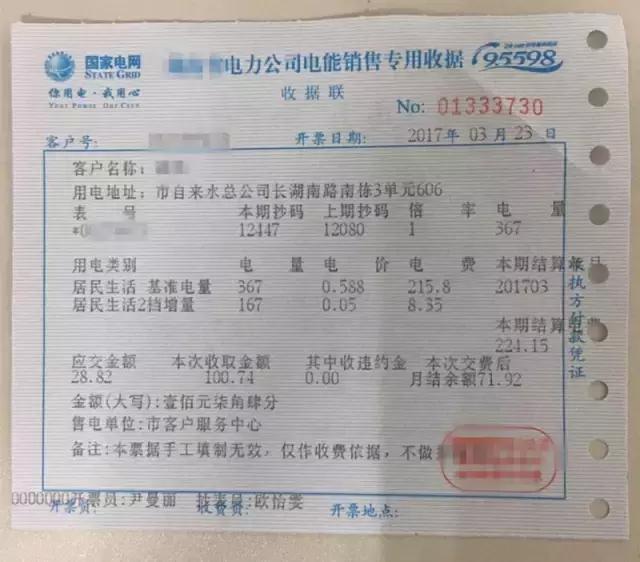 国家电网
STATE GRID
你用电·我用心
Your Power Our Care
电力公司电能销售专用收据
95598
收据联
No: 01333730
客户号:
开票日期: 2017年 03月 23日
客户名称:
用电地址: 市自来水总公司长湖南路南栋3单元606
表 号 本期抄码 上期抄码 倍 率 电 量
12447 12080 1 367
用电类别 电 量 电 价 电 费 本期结算年月
居民生活 基准电量 367 0.588 215.8 201703
居民生活2挡增量 167 0.05 8.35
本期结算电费
224.15
应交金额 本次收取金额 其中收违约金 本次交费后
28.82 100.74 0.00 月结余额71.92
金额(大写):壹佰元柒角肆分
售电单位:市客户服务中心
备注:本票据手工填制无效, 仅作收费依据, 不做
执方付款凭证
开票员:尹曼丽 抄表员:欧怡雯
收费员:
开票地点: